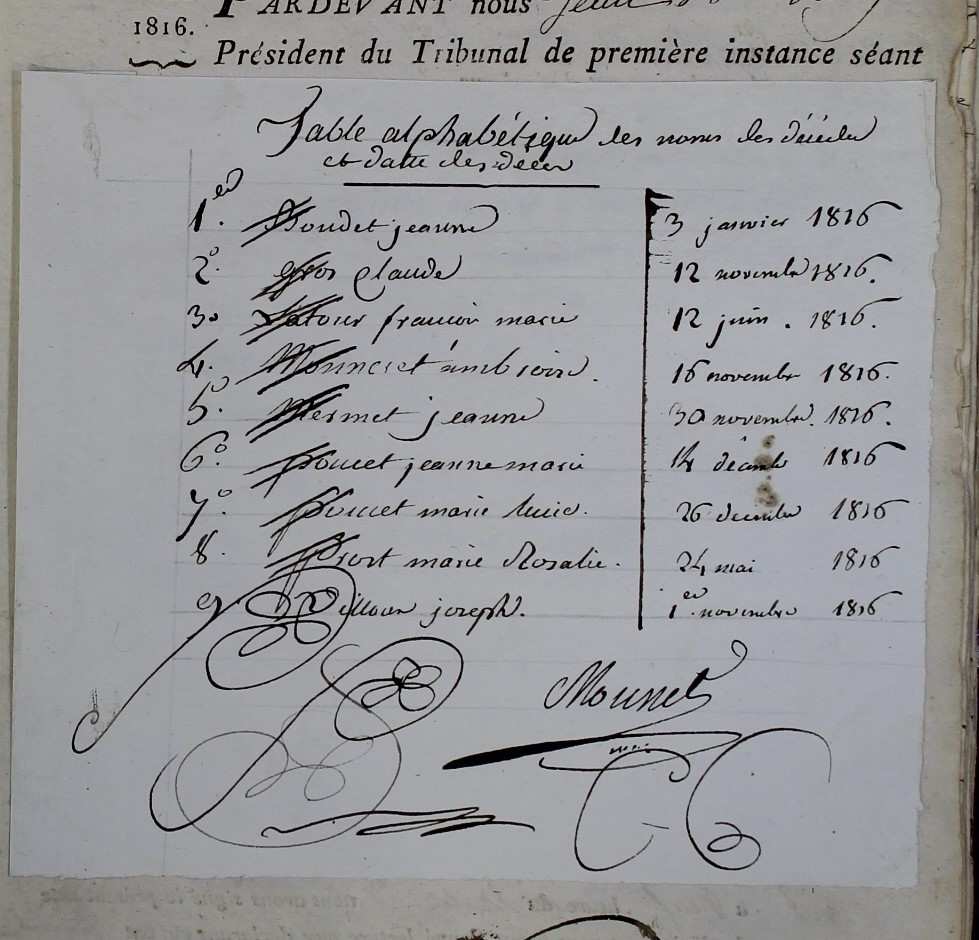 PARDEVANT nous Jean
1816.
Président du Tribunal de première instance séant
Table alphabétique des noms des décédés
et datte des décès
1er. Boudet jeanne 3 janvier 1816
2°. gros claude 12 novembre 1816.
3° Latour francois marie 12 juin . 1816.
4. Monneret ambroise. 16 novembre 1816.
5°. Mermet jeanne 30 novembre. 1816.
6° poncet jeanne marie 14 décembre 1816
7.° poncet marie lucie. 26 décembre 1816
8. prost marie Rosalie. 24 mai 1816
9 joseph. 1er novembre 1816
Monnet